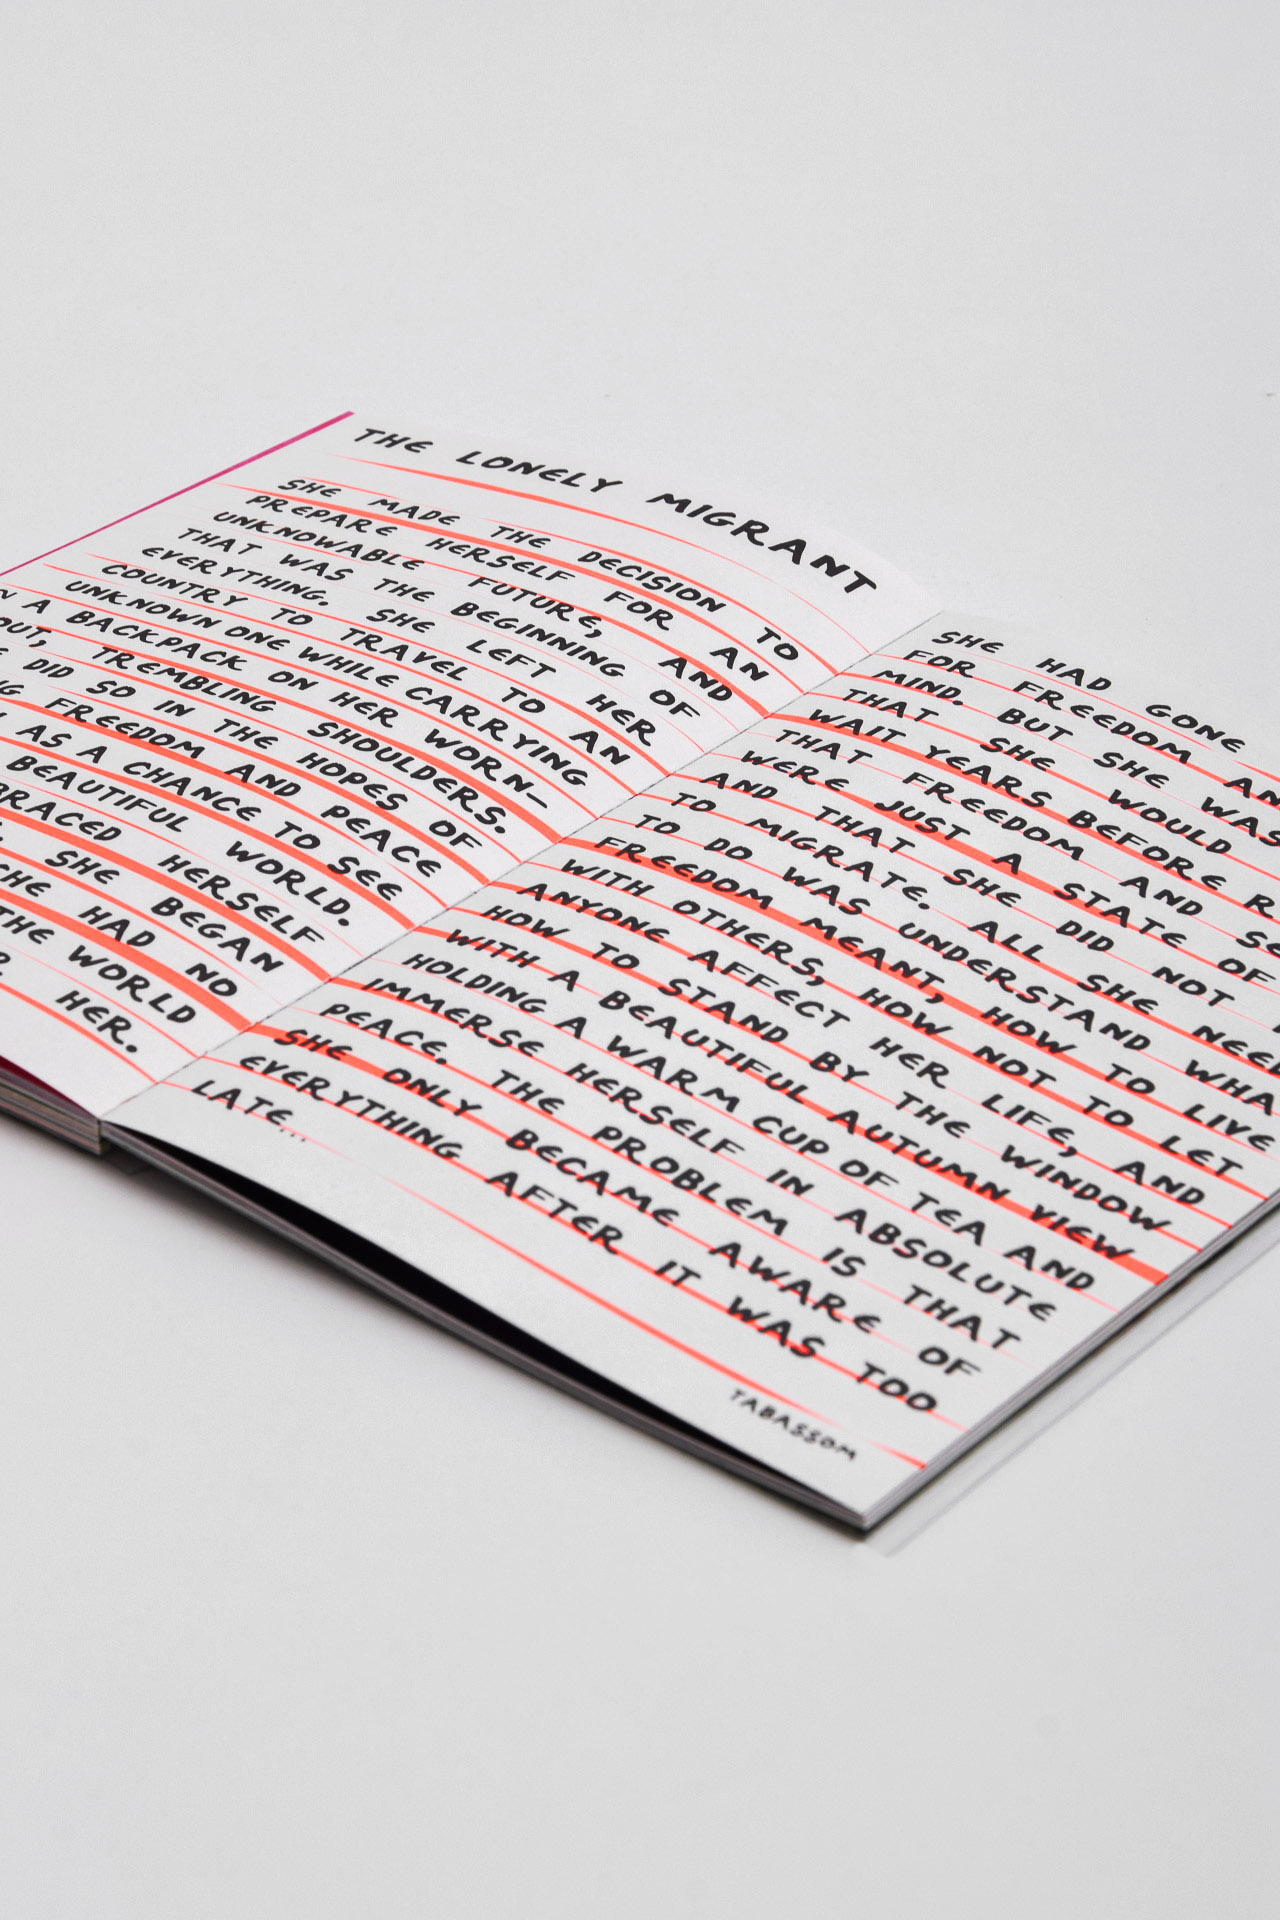 THE LONELY MIGRANT
SHE MADE THE DECISION TO
PREPARE HERSELF FOR AN
UNKNOWABLE FUTURE, AND
THAT WAS THE BEGINNING OF
EVERYTHING. SHE LEFT HER
COUNTRY TO TRAVEL TO AN
UNKNOWN ONE WHILE CARRYING
A BACKPACK ON HER WORN-
OUT, TREMBLING SHOULDERS.
DID SO IN THE HOPES OF
FREEDOM AND PEACE
AS A CHANCE TO SEE
BEAUTIFUL WORLD.
HERSELF
SHE BEGAN
HAD NO
THE WORLD
HER.
SHE HAD GONE
FOR FREEDOM
MIND. BUT SHE WAS
THAT SHE WOULD
WAIT YEARS BEFORE
THAT FREEDOM AND
WERE JUST A STATE OF
AND THAT SHE DID NOT
TO MIGRATE. ALL SHE
TO DO WAS UNDERSTAND
FREEDOM MEANT, HOW TO LIVE
WITH OTHERS, HOW NOT TO LET
ANYONE AFFECT HER LIFE, AND
HOW TO STAND BY THE WINDOW
WITH A BEAUTIFUL AUTUMN VIEW
HOLDING A WARM CUP OF TEA AND
IMMERSE HERSELF IN ABSOLUTE
PEACE. THE PROBLEM IS THAT
SHE ONLY BECAME AWARE OF
EVERYTHING AFTER IT WAS TOO
LATE...
TABASSOM